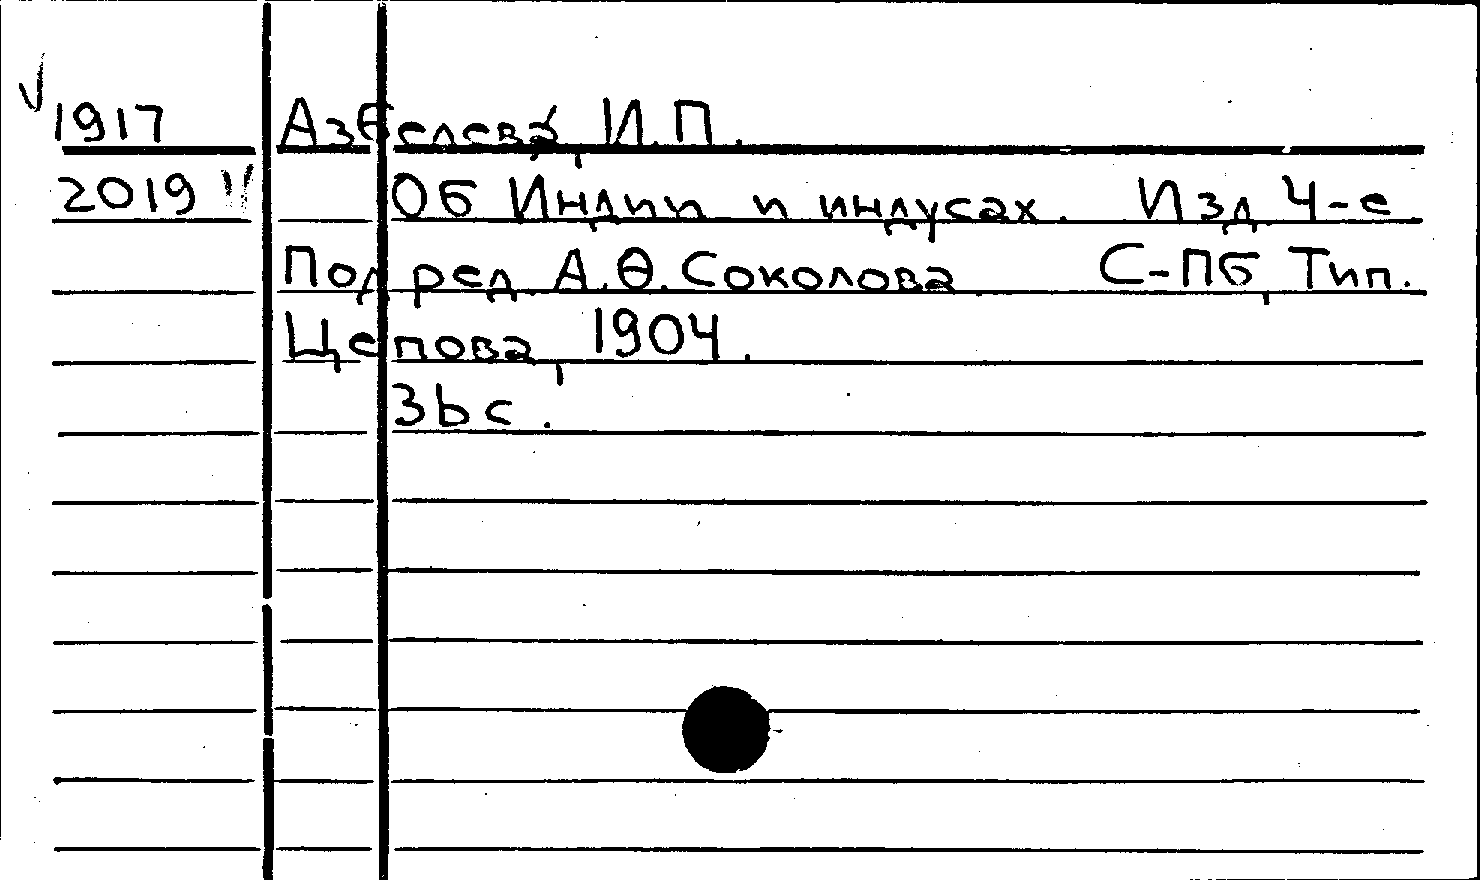 1917 Азбелева, И.П.
2019 Об Индии и индусах. Изд 4-е
Под ред. А.Ѳ. Соколова С-Пб, Тип.
Цепова, 1904.
36с.